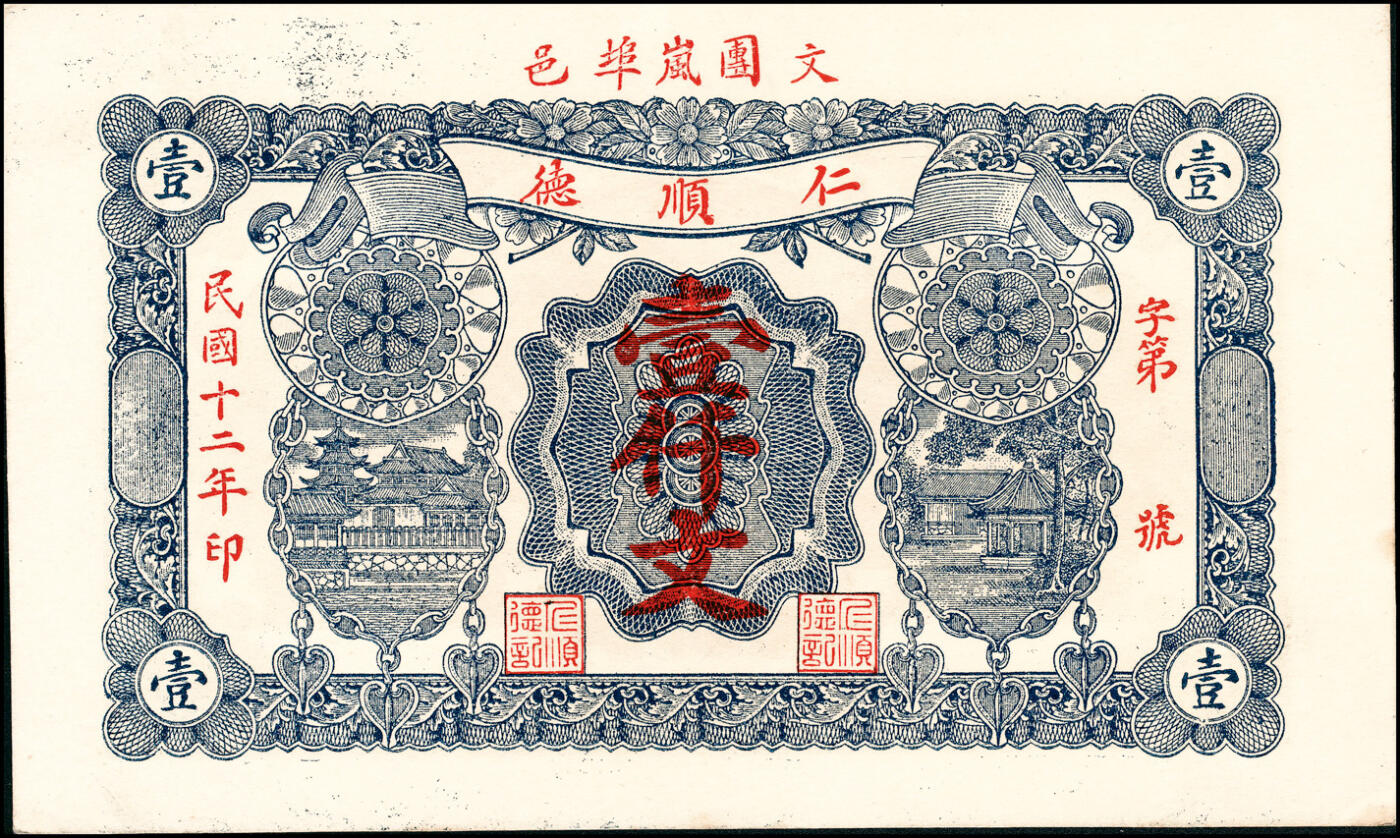 文團嵐埠邑
仁順德
壹
壹
字第 號
文
民國十二年印
仁順德記
仁順德記
壹
壹